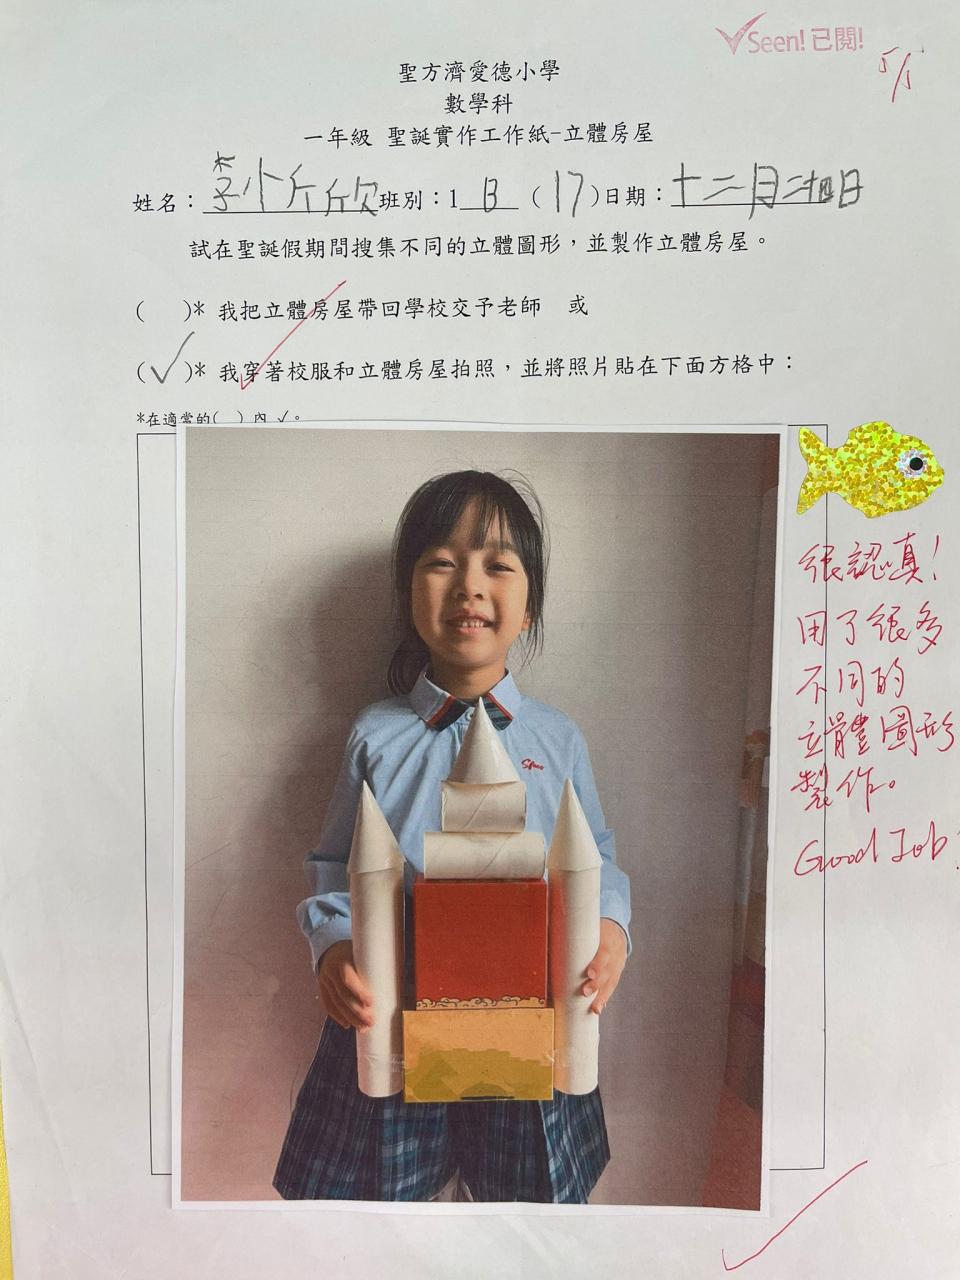 Seen! 已閱!
5/1
聖方濟愛德小學
數學科
一年級 聖誕實作工作紙-立體房屋
姓名：李小斤欣 班別：1 B (17) 日期：十二月二十四日
試在聖誕假期間搜集不同的立體圖形，並製作立體房屋。
( )* 我把立體房屋帶回學校交予老師 或
(✓)* 我穿著校服和立體房屋拍照，並將照片貼在下面方格中：
*在適當的( ) 內 ✓。
很認真！
用了很多
不同的
立體圖形
製作。
Good Job!